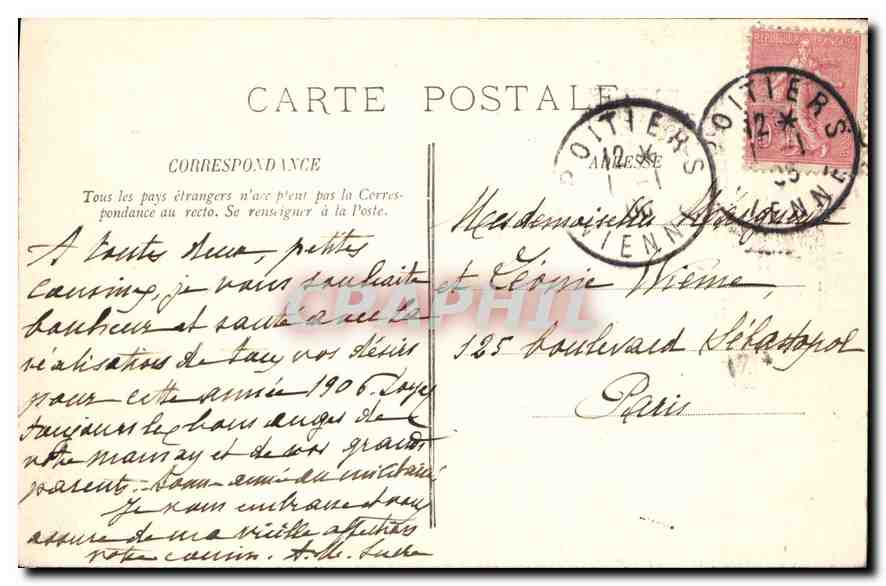 CARTE POSTALE
REPUBLIQUE FRANÇAISE
POITIERS
12 *
1 - 1
VIENNE
POITIERS
12 *
1 - 1
06
VIENNE
CORRESPONDANCE
ADRESSE
Tous les pays étrangers n'acceptent pas la Corres-
pondance au recto. Se renseigner à la Poste.
CPAPHIL
A toutes deux, petites
cousines, je vous souhaite
bonheur et santé avec la
réalisation de tous vos désirs
pour cette année 1906. Soyez
toujours les bons anges de
votre maman et de vos grands
parents.
Je vous embrasse et vous
assure de ma vieille affection
votre cousin. A. M.
Mesdemoiselles
et Léonie Wieme,
125 boulevard Sébastopol
Paris